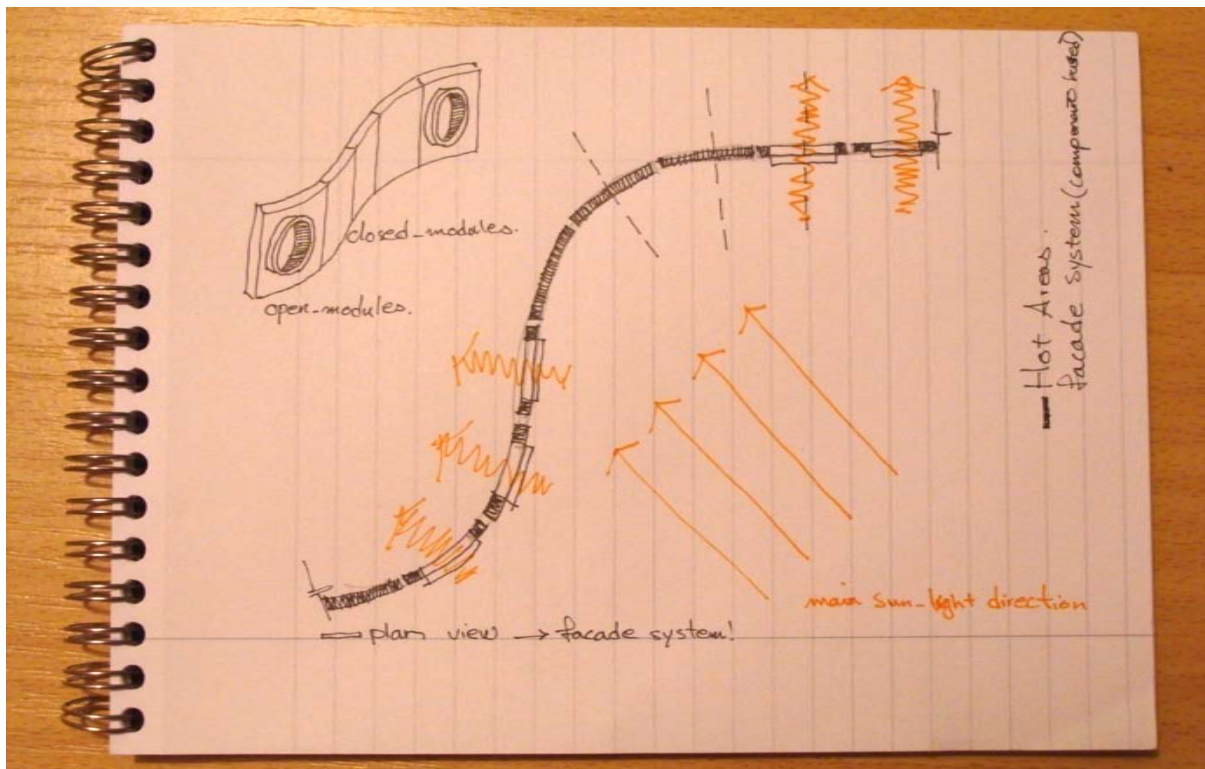 closed_modules.
open_modules.
main sun_light direction
plan view → facade system!
Hot Areas.
facade system (component based)